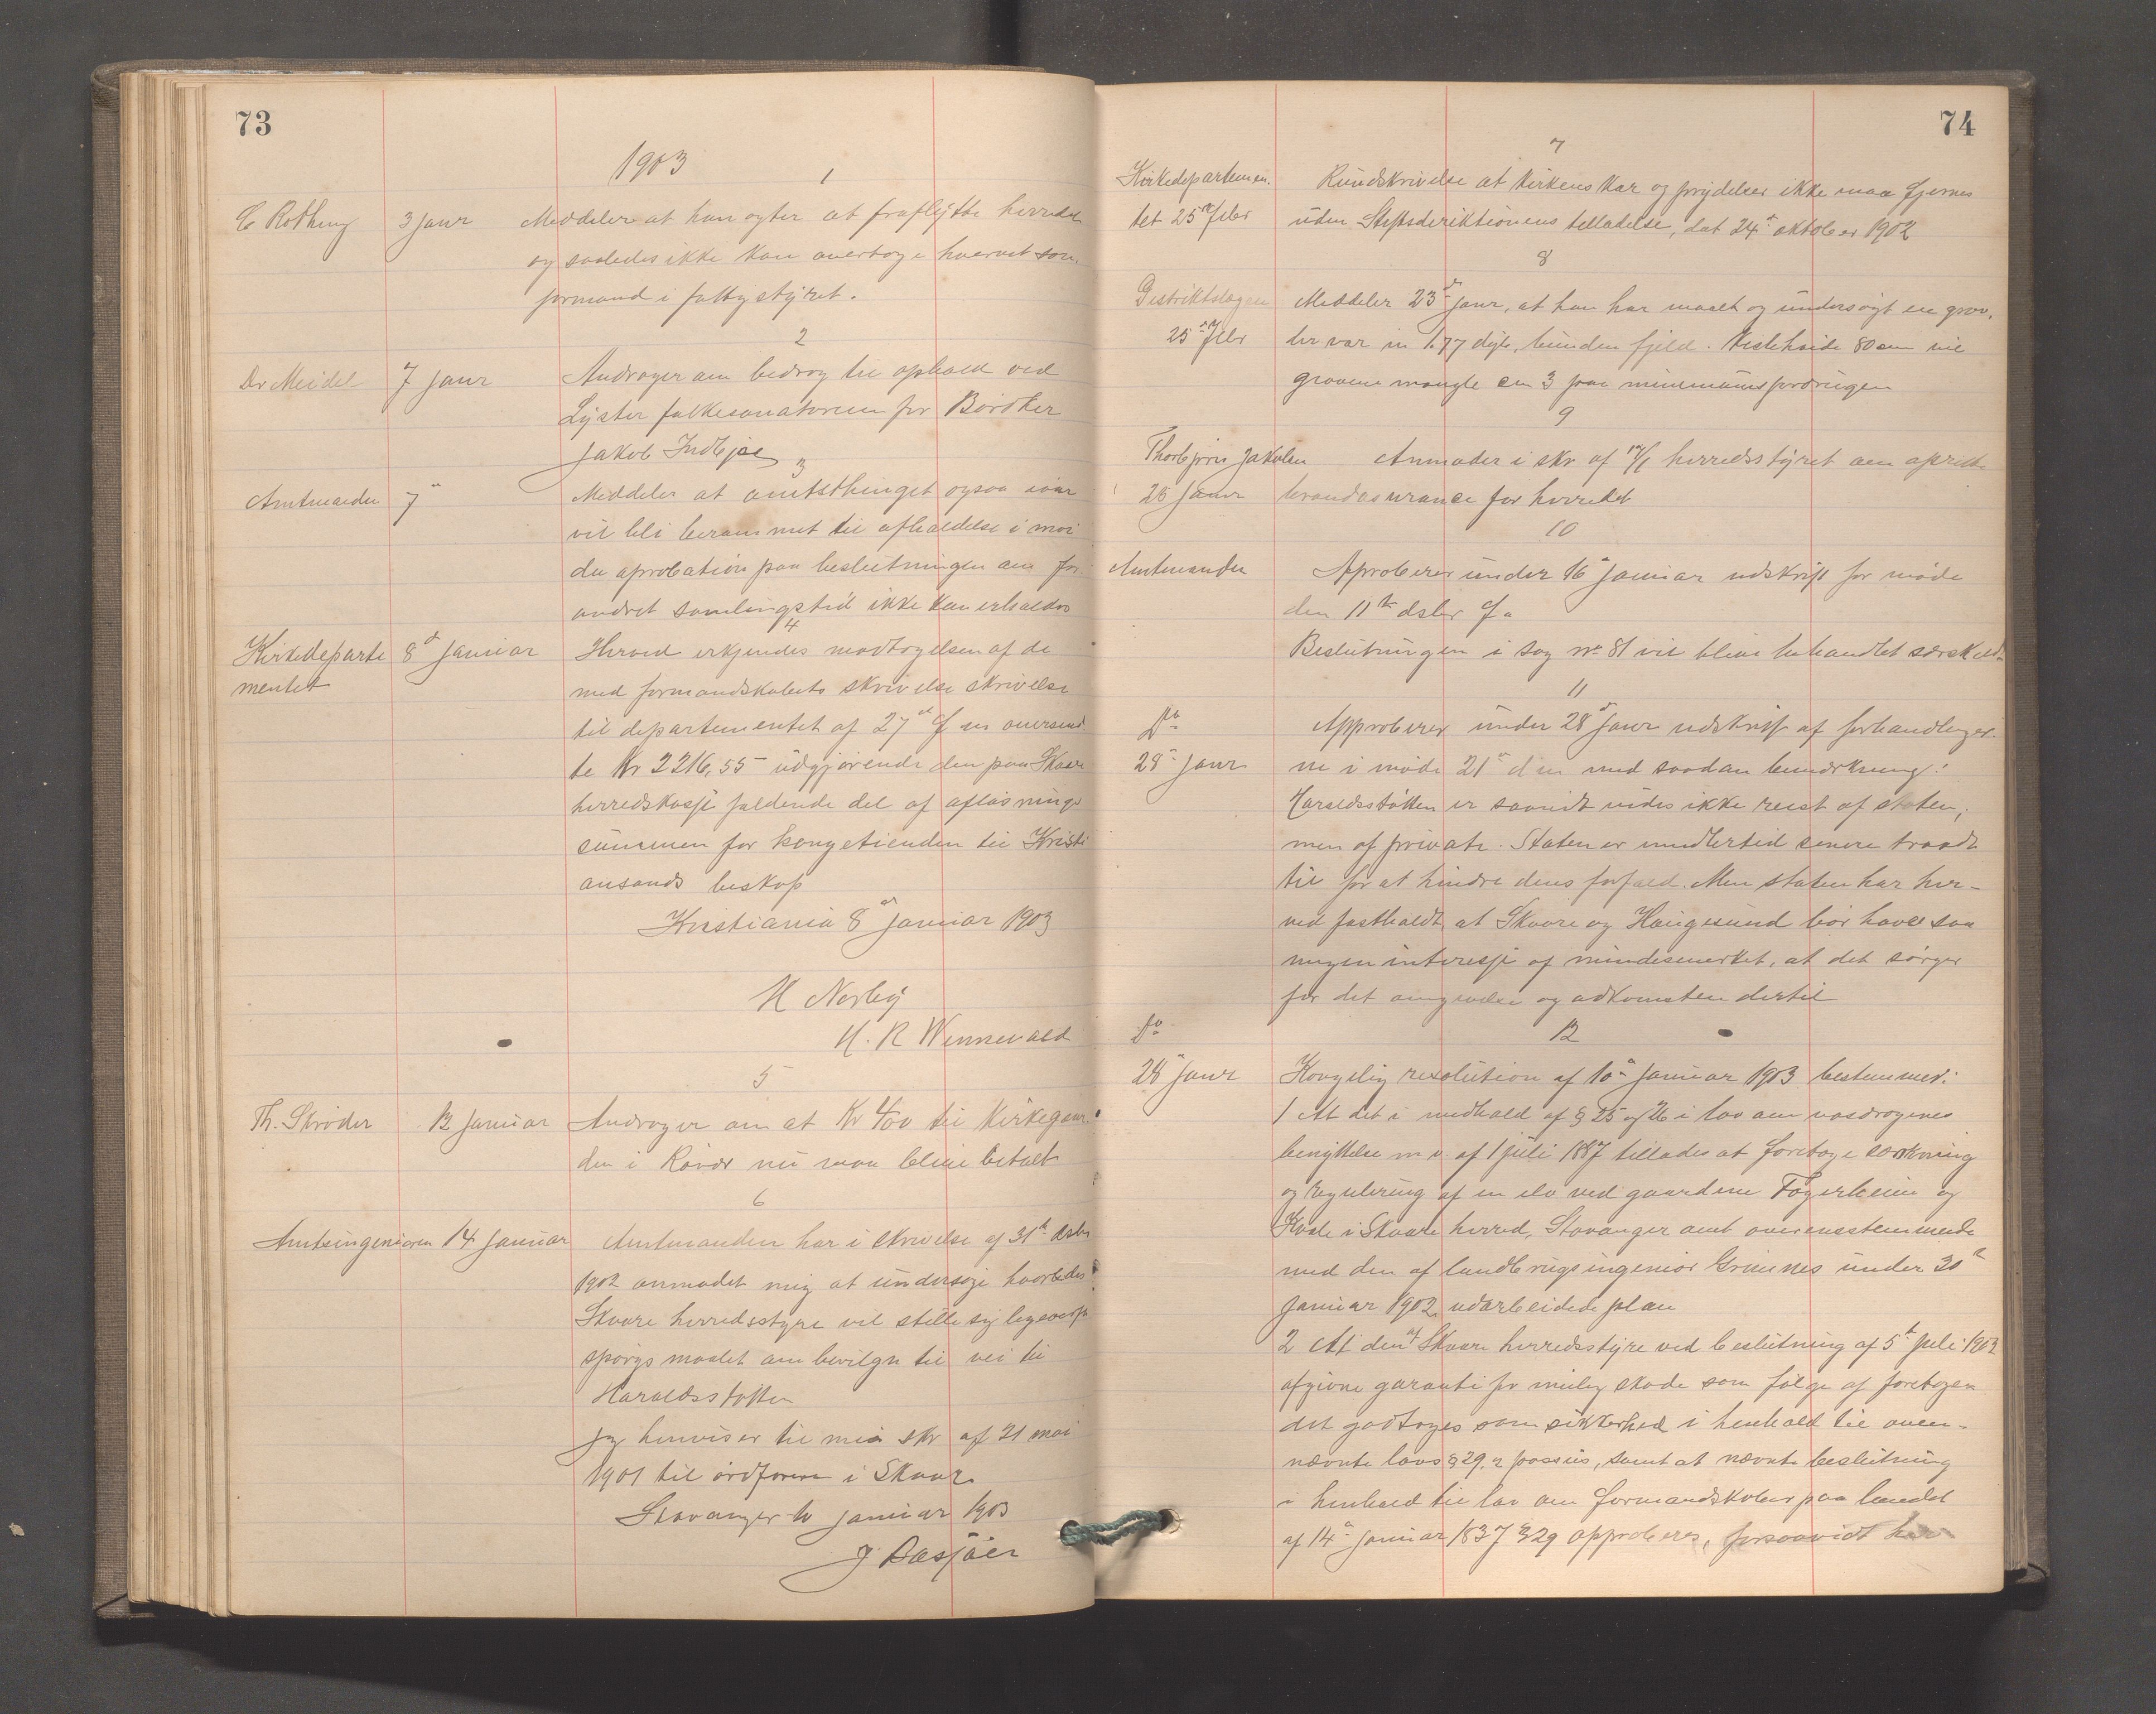 73
1903
1
3 Janr Meddeler at han agter at fraflytte herredet
og saaledes ikke kan overtage hvervet som
formand i fattigstyret.
2
Dr Meidel 7 Janr Andrager om bedrag til ophold ved
Lyster folkesanatorium for
Jakob
3
Amtmanden 7 Meddeler at amtsthinget ogsaa iaar
vil bli berammet til afholdelse i mai
da aprobation paa beslutningen om for
andret samlingstid ikke kan erholdes
4
Kirkedeparte 8 Januar Herved erkjendes modtagelsen af de
mentet med formandskabets skrivelse skrivelse
til departementet af 27 f m oversend
te Kr 2216,55 udgjørende den paa Skaare
herredskasse faldende del af afløsnings
summen for kongetienden til Kristi
ansands beskop
Kristiania 8 Januar 1903
H Nerby
H. R Wennevald
5
Th. Schrøder 12 Januar Andrager om at Kr 400 til Kirkegaar
den i Røvær nu maa blive betalt
6
Amtsingeniøren 14 Januar Amtmanden har i skrivelse af 31 dsbr
1902 anmodet mig at undersøge hvorledes
Skaare herredsstyre vil stille sig ligeoverfor
spørgsmaalet om bevilgn til vei til
Haraldsstøtten
Jeg henviser til min skr af 21 mai
1901 til ordføreren i Skaare
Stavanger januar 1903
74
7
Kirkedepartemen- Rundskrivelse at kirkens kar og prydelser ikke maa fjernes
tet 25 febr uden Stiftsderiktionens telladelse, dat 24 oktober 1902
8
Distriktslægen Meddeler 23 Janr, at han har maalt og undersøgt en grav,
25 febr der var m 1.77 dyb, bunden fjeld. Kistehøide 80 cm vil
graven mangle cm 3 paa minimumsfordringen
9
Thorbjørn Jakobsen Anmoder i skr af herredsstyret om oprette
25 Janr brandasurance for herredet
10
Amtmanden Aproberer under 16 Januar udskrift for møde
den 11 dsbr f a
Beslutningen i sag nr 81 vil blive behandlet særskildt
11
Do Approberer under 28 Janr udskrift af forhandlinger-
28 Janr ne i møde 21 d m med saadan bemærkning:
Haraldsstøtten er saavidt vides ikke reist af staten,
men af private. Staten er imidlertid senere traadt
til for at hindre dens forfald. Men staten har her-
ved fastholdt, at Skaare og Haugesund bør have saa
megen interesse af mindesmerket, at det sørger
for det omgivelse og adkomsten dertil
Do 12
28 Janr Kongelig resolution af 10 Januar 1903 bestemmer:
1 At det i medhold af § 25 og 26 i lov om vasdragenes
benyttelse m v af 1 juli 1887 tillades at foretage sænkning
og regulering af en elv ved gaardene Fagerheim og
Kvale i Skaare herred, Stavanger amt overensstemmende
med den af landbrugsingeniør Grimnes under 30
Januar 1902 udarbeidede plan
2 At den af Skaare herredsstyre ved beslutning af 5 juli 1902
afgivne garanti for mulig skade som følge af foretagen
det godtages som sikkerhed i henhold til oven-
nævnte lovs § 29. 2 passus, samt at nævnte beslutning
i henhold til lov om formandskaber paa landet
af 14 Januar 1837 § 29 approberes, forsaavidt